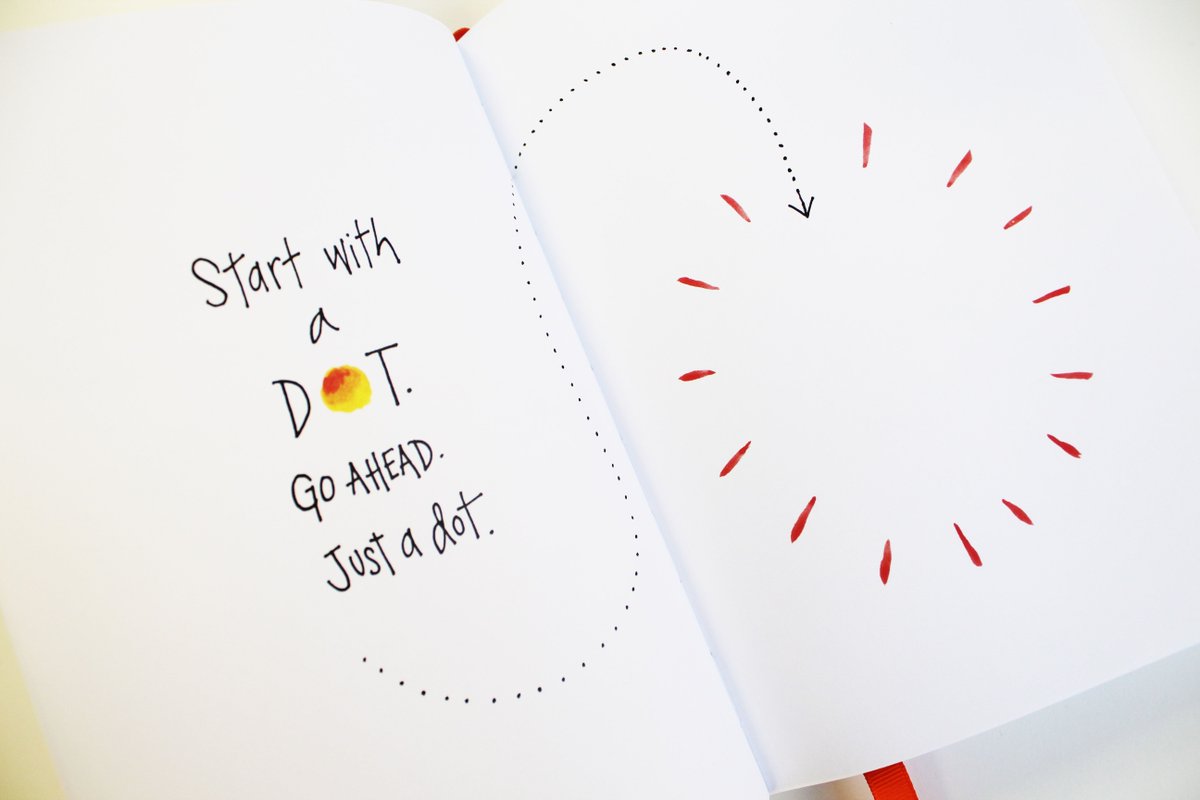 Start with
a
DOT.
GO AHEAD.
Just a dot.